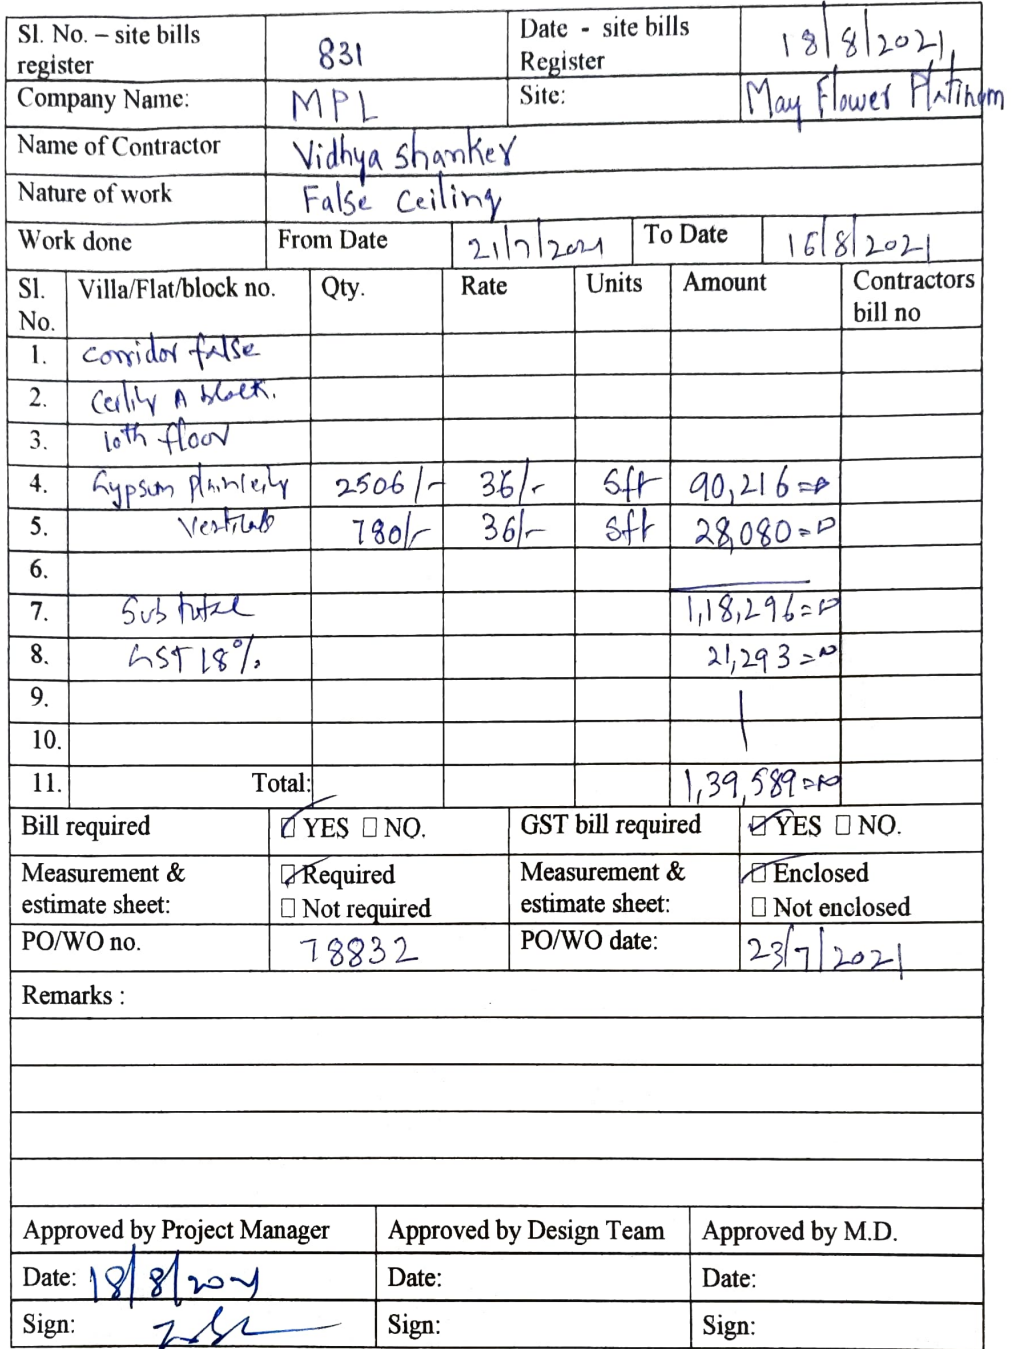 Sl. No. – site bills register 831 Date - site bills Register 18/8/2021
Company Name: MPL Site: May Flower Platinum
Name of Contractor Vidhya Shanker
Nature of work False Ceiling
Work done From Date 21/7/2021 To Date 16/8/2021
Sl. No. Villa/Flat/block no. Qty. Rate Units Amount Contractors bill no
1. Corridor false
2. A block.
3. 10th floor
4. Gypsum 2506/- 36/- Sft 90,216=00
5. 780/- 36/- Sft 28,080=00
6.
7. Sub total 1,18,296=00
8. GST 18% 21,293=00
9.
10.
11. Total: 1,39,589=00
Bill required YES NO. GST bill required YES NO.
Measurement & estimate sheet: Required Not required Measurement & estimate sheet: Enclosed Not enclosed
PO/WO no. 78832 PO/WO date: 23/7/2021
Remarks :
Approved by Project Manager Approved by Design Team Approved by M.D.
Date: 18/8/2021 Date: Date:
Sign: Sign: Sign: